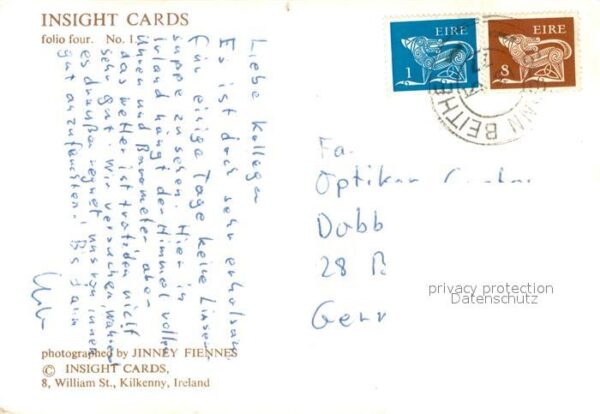 INSIGHT CARDS
folio four. No. 1
Liebe Kollegen
Es ist doch sehr erholsam
für einige Tage keine Linsen-
suppe zu sehen. Hier in
Irland hängt der Himmel voller
Uhren und Barometer aber
das Wetter ist trotzdem nicht
sehr gut. Wir versuchen, während
es draußen regnet, uns von innen
gut anzufeuchten. Bis dann
photographed by JINNEY FIENNES
© INSIGHT CARDS,
8, William St., Kilkenny, Ireland
EIRE
1
EIRE
8
BEITHE
Fa.
Optiker
Dobb
28 B
Germ
privacy protection
Datenschutz